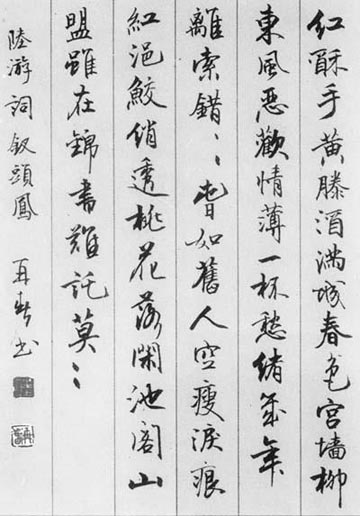 紅酥手黄滕酒满城春色宫墙柳
東風惡歡情薄一杯愁緒幾年
離索錯〻春如舊人空瘦淚痕
紅浥鮫綃透桃花落閑池閣山
盟雖在錦書難託莫〻
陸游詞釵頭鳳